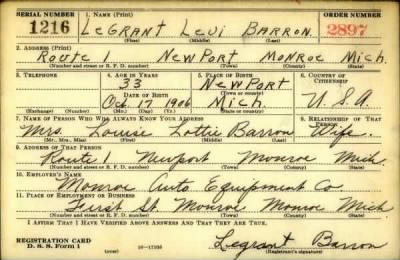 SERIAL NUMBER 1. NAME (Print) ORDER NUMBER
1216 LEGRANT LEVI BARRON. 2897
(First) (Middle) (Last)
2. ADDRESS (Print)
ROUTE 1 NEWPORT MONROE MICH.
(Number and street or R. F. D. number) (Town) (County) (State)
3. TELEPHONE 4. AGE IN YEARS 5. PLACE OF BIRTH 6. COUNTRY OF CITIZENSHIP
33 NEWPORT
DATE OF BIRTH (Town or county)
Oct. 17 1906 Mich. U.S.A
(Exchange) (Number) (Mo.) (Day) (Yr.) (State or country)
7. NAME OF PERSON WHO WILL ALWAYS KNOW YOUR ADDRESS 8. RELATIONSHIP OF THAT PERSON
Mrs. Louise Lottie Barron Wife.
(Mr., Mrs., Miss) (First) (Middle) (Last)
9. ADDRESS OF THAT PERSON
Route 1 Newport Monroe Mich.
(Number and street or R. F. D. number) (Town) (County) (State)
10. EMPLOYER'S NAME
Monroe Auto Equipment Co
11. PLACE OF EMPLOYMENT OR BUSINESS
First St. Monroe Monroe Mich
(Number and street or R. F. D. number) (Town) (County) (State)
I AFFIRM THAT I HAVE VERIFIED ABOVE ANSWERS AND THAT THEY ARE TRUE.
REGISTRATION CARD
D. S. S. Form 1 Legrant Barron
(Registrant's signature)